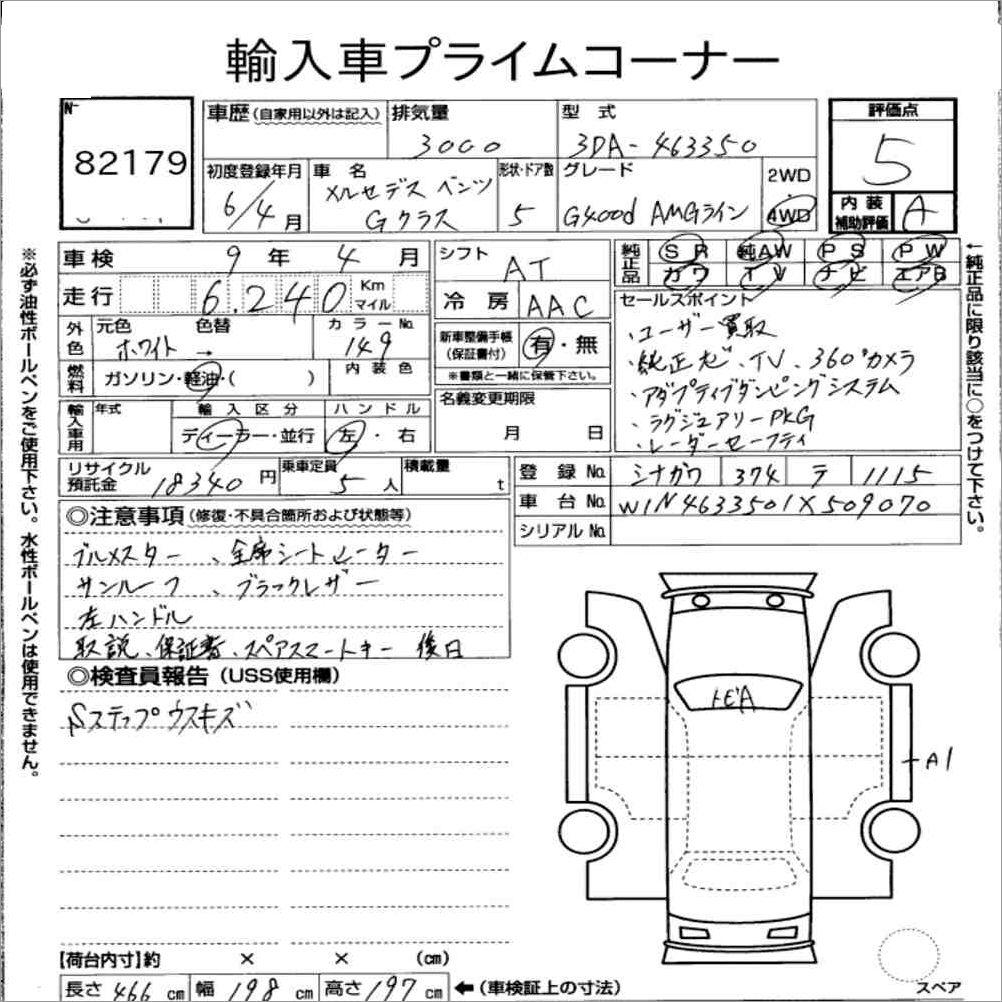 輸入車プライムコーナー
No. 82179
車歴 (自家用以外は記入)
排気量 3000
型式 3DA-463350
評価点 5
内装補助評価 A
初度登録年月 6/4月
車名 メルセデス ベンツ Gクラス
形状・ドア数 5
グレード G400d AMGライン
2WD
4WD
車検 9年 4月
走行 6.240 Km マイル
シフト AT
冷房 AAC
純正品 SR 純AW PS PW
カワ TV ナビ エアB
外色 元色 ホワイト 色替 →
カラーNo. 149
内装色
燃料 ガソリン・軽油・( )
新車整備手帳 (保証書付) 有・無
※書類と一緒に保管下さい。
名義変更期限 月 日
輸入車用 年式
輸入区分 ディーラー・並行
ハンドル 左・右
リサイクル預託金 18340円
乗車定員 5人
積載量 t
セールスポイント
・ユーザー買取
・純正ナビ、TV、360°カメラ
・アダプティブダンピングシステム
・ラグジュアリーPKG
・レーダーセーフティ
登録No. シナガワ 374 テ 1115
車台No. W1N4633501X509070
シリアルNo.
◎注意事項 (修復・不具合箇所および状態等)
ブルメスター、全席シートヒーター
サンルーフ、ブラックレザー
左ハンドル
取説、保証書、スペアスマートキー 後日
◎検査員報告 (USS使用欄)
Sステップウスキズ
トビA
A1
【荷台内寸】約 × × (cm)
長さ 466 cm 幅 198 cm 高さ 197 cm ←(車検証上の寸法)
スペア
※必ず油性ボールペンをご使用下さい。水性ボールペンは使用できません。
←純正品に限り該当に○をつけて下さい。